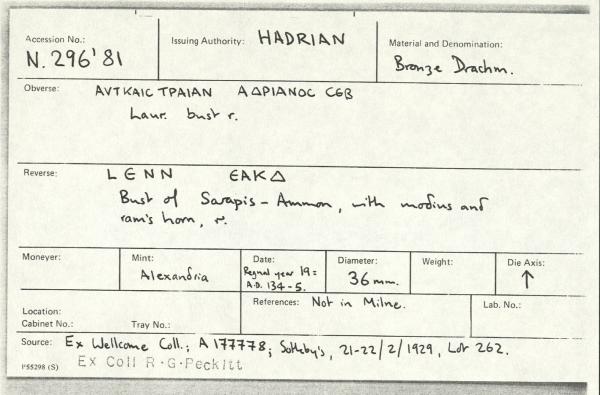 Accession No.:
N. 296'81
Issuing Authority: HADRIAN
Material and Denomination:
Bronze Drachm.
Obverse: ΑΥΤΚΑΙC ΤΡΑΙΑΝ ΑΔΡΙΑΝΟC CЄΒ
Laur. bust r.
Reverse: L ЄΝΝ ЄΑΚΔ
Bust of Sarapis - Ammon, with modius and
ram's horn, r.
Moneyer:
Mint:
Alexandria
Date:
Regnal year 19 =
A.D. 134-5.
Diameter:
36 mm.
Weight:
Die Axis:
↑
Location:
Cabinet No.: Tray No.:
References: Not in Milne.
Lab. No.:
Source: Ex Wellcome Coll.; A 177778; Sotheby's, 21-22/2/1929, Lot 262.
Ex Coll R·G·Peckitt
P55298 (S)